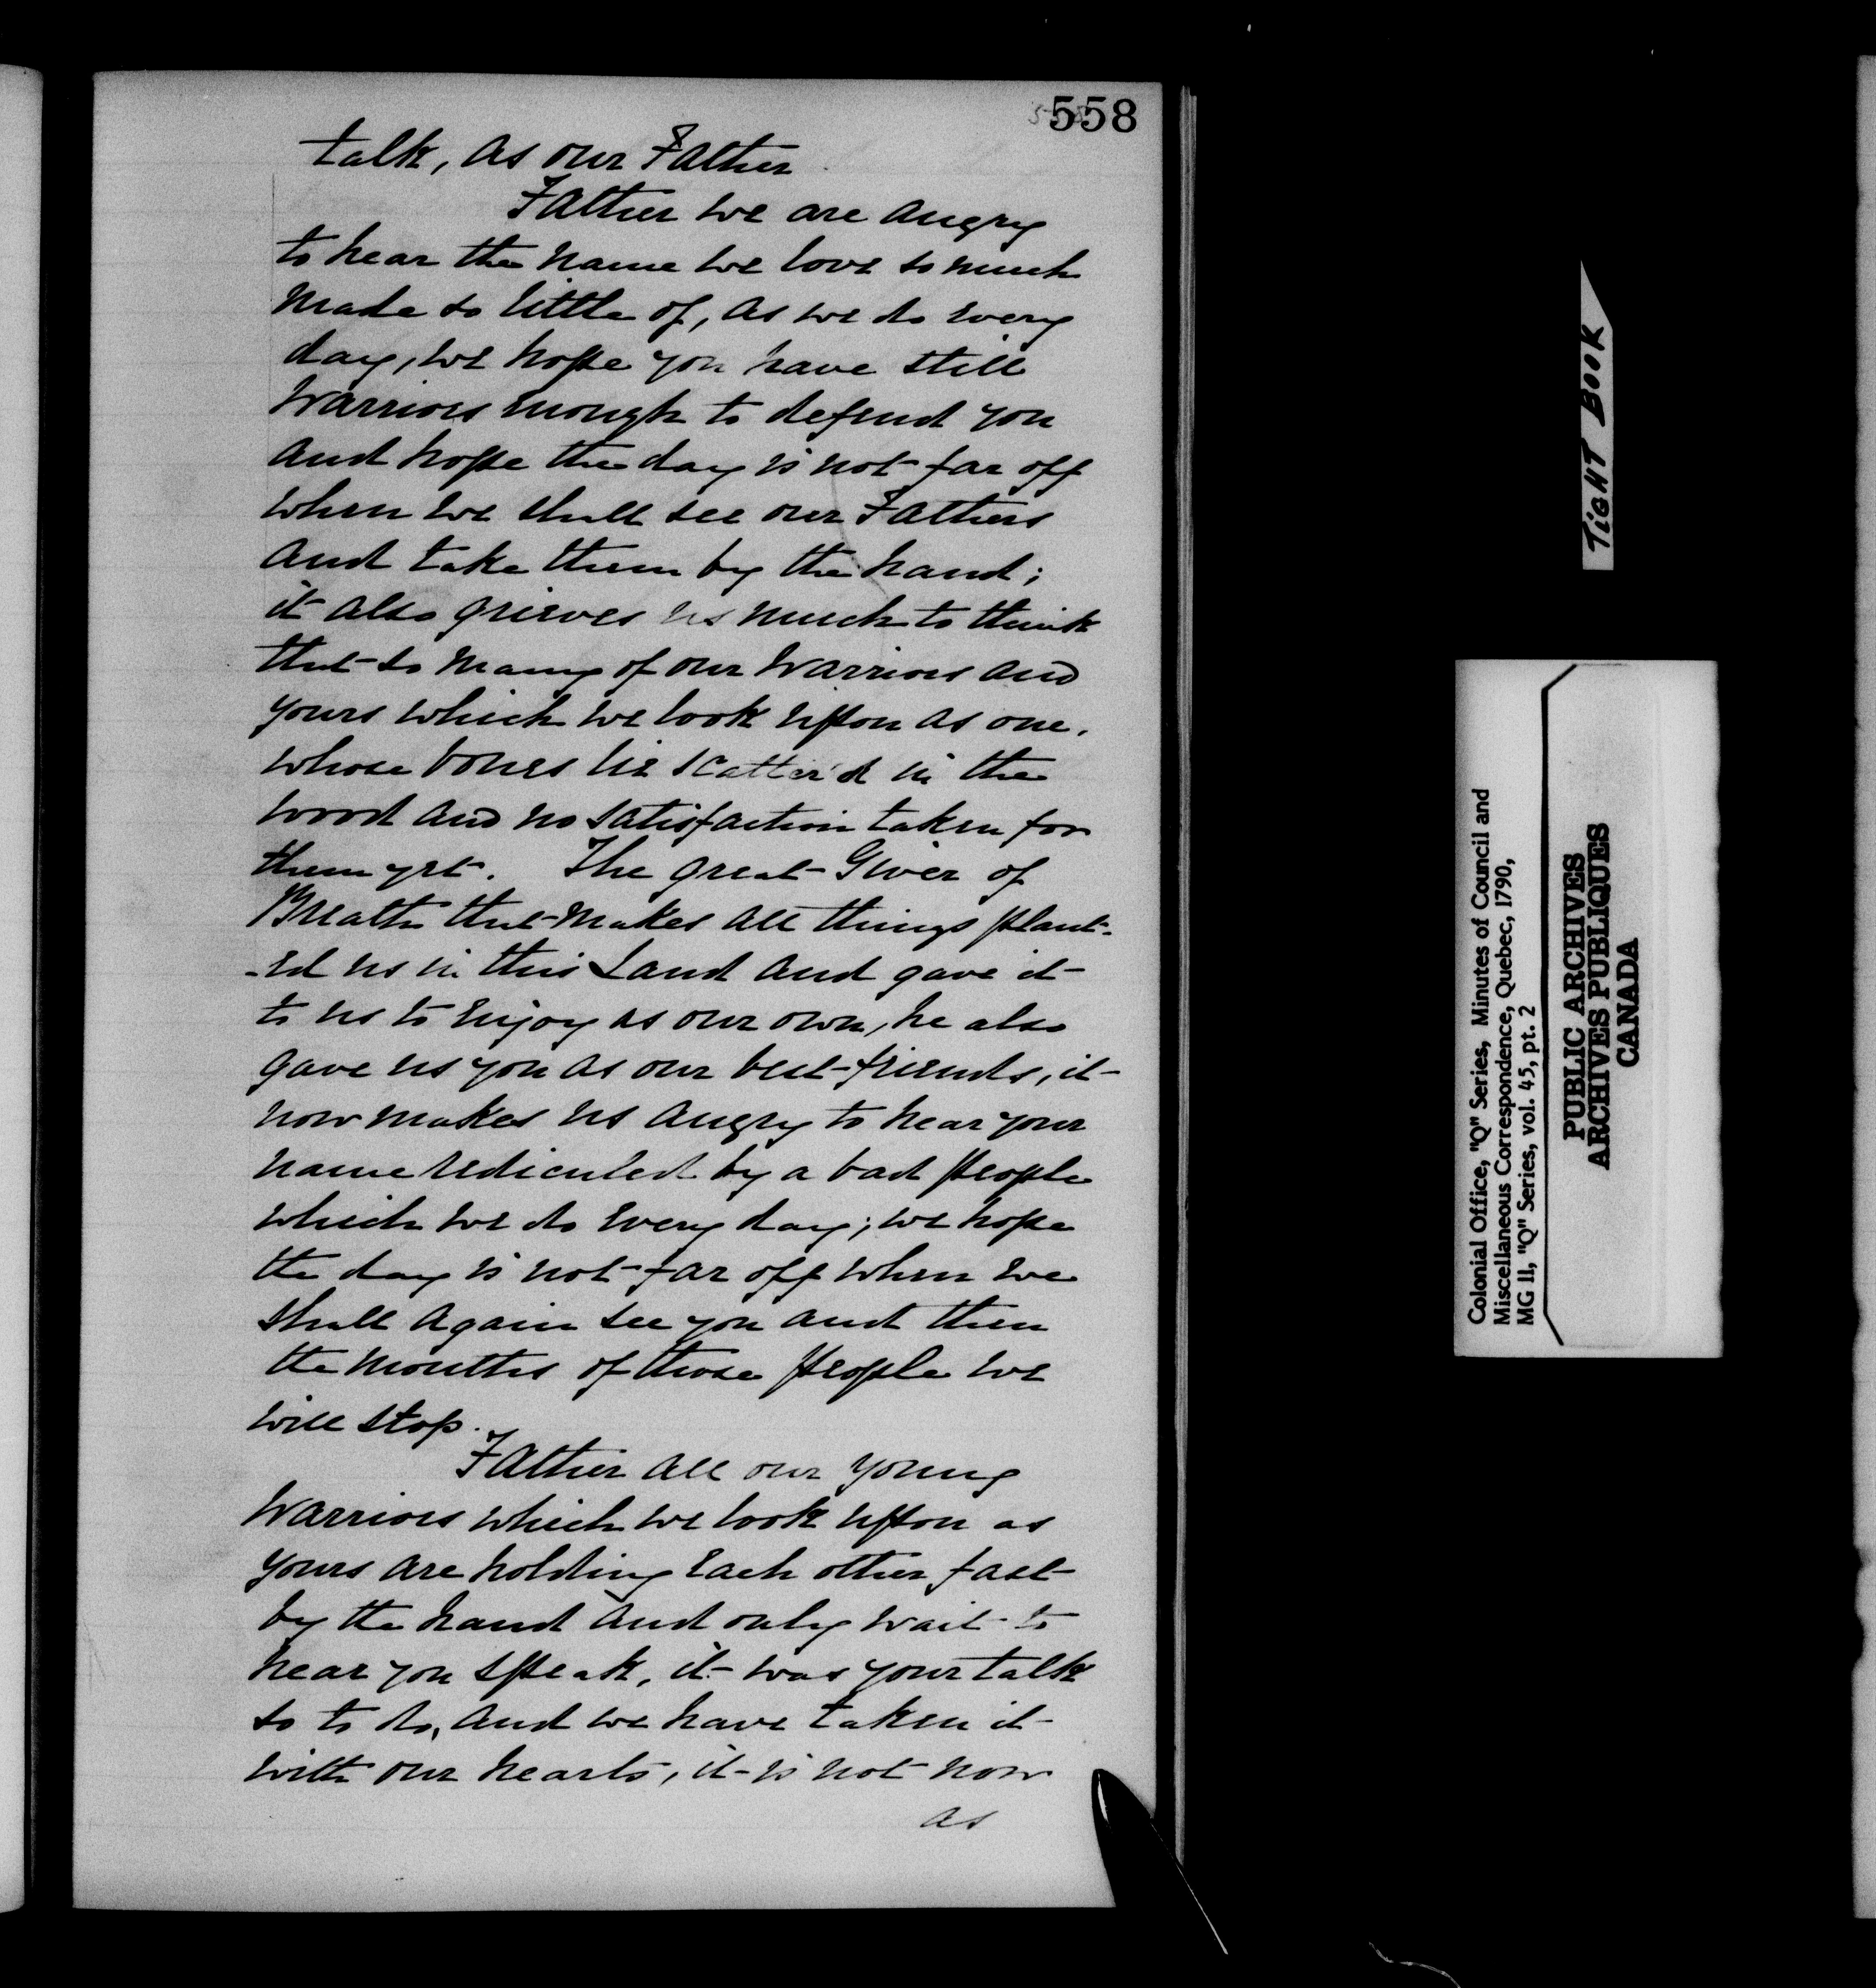 558
talk, as our Father
Father we are angry
to hear the name we love so much
made so little of, as we do every
day, we hope you have still
Warriors enough to defend you
and hope the day is not far off
when we shall see our Fathers
and take them by the hand;
it also grieves us much to think
that so many of our Warriors and
yours which we look upon as one,
whose bones lie scatter'd in the
wood and no satisfaction taken for
them yet. The great Giver of
Breath that makes all things plant-
-ed us in this Land and gave it
to us to enjoy as our own, he also
gave us you as our best friends, it
now makes us angry to hear your
name rediculed by a bad people
which we do every day; we hope
the day is not far off when we
shall again see you and then
the mouths of those people we
will stop.
Father all our young
Warriors which we look upon as
yours are holding each other fast
by the hand and only wait to
hear you speak, it was your talk
so to do, and we have taken it
with our hearts, it is not now
as
TIGHT BOOK
Colonial Office, "Q" Series, Minutes of Council and
Miscellaneous Correspondence, Quebec, 1790,
MG 11, "Q" Series, vol. 45, pt. 2
PUBLIC ARCHIVES
ARCHIVES PUBLIQUES
CANADA